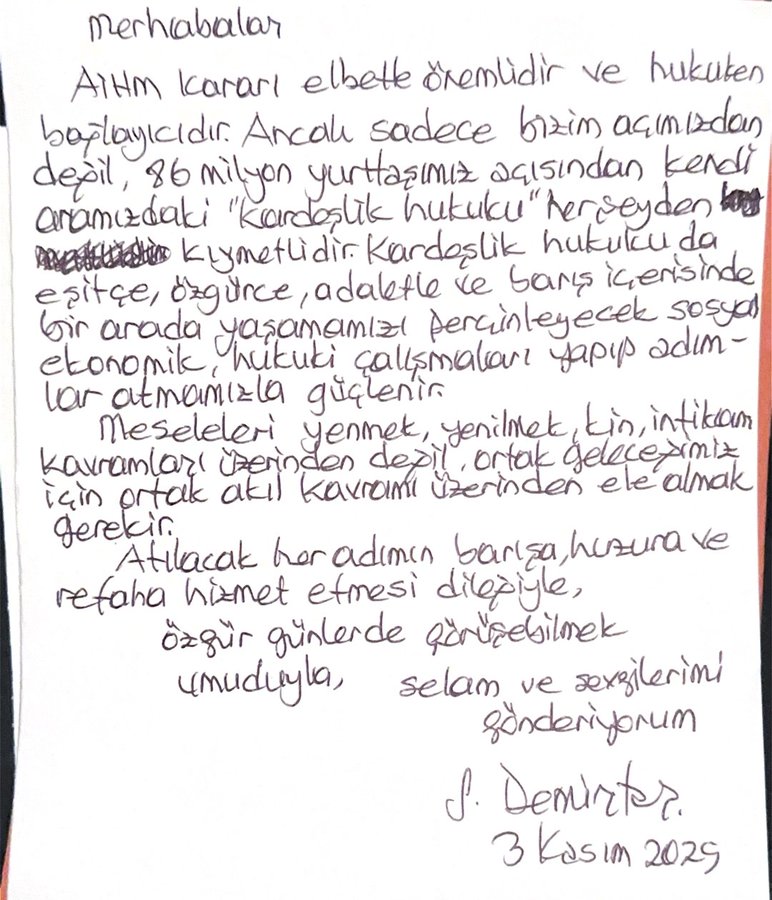 Merhabalar
AİHM kararı elbette önemlidir ve hukuken
bağlayıcıdır. Ancak sadece bizim açımızdan
değil, 86 milyon yurttaşımız açısından kendi
aramızdaki "Kardeşlik hukuku" herşeyden
kıymetlidir. Kardeşlik hukuku da
eşitçe, özgürce, adaletle ve barış içerisinde
bir arada yaşamamızı perçinleyecek sosyal
ekonomik, hukuki çalışmaları yapıp adım-
lar atmamızla güçlenir.
Meseleleri yenmek, yenilmek, kin, intikam
kavramları üzerinden değil, ortak geleceğimiz
için ortak akıl kavramı üzerinden ele almak
gerekir.
Atılacak her adımın barışa, huzura ve
refaha hizmet etmesi dileğiyle,
özgür günlerde görüşebilmek
umuduyla, selam ve sevgilerimi
gönderiyorum
S. Demirtaş.
3 Kasım 2025